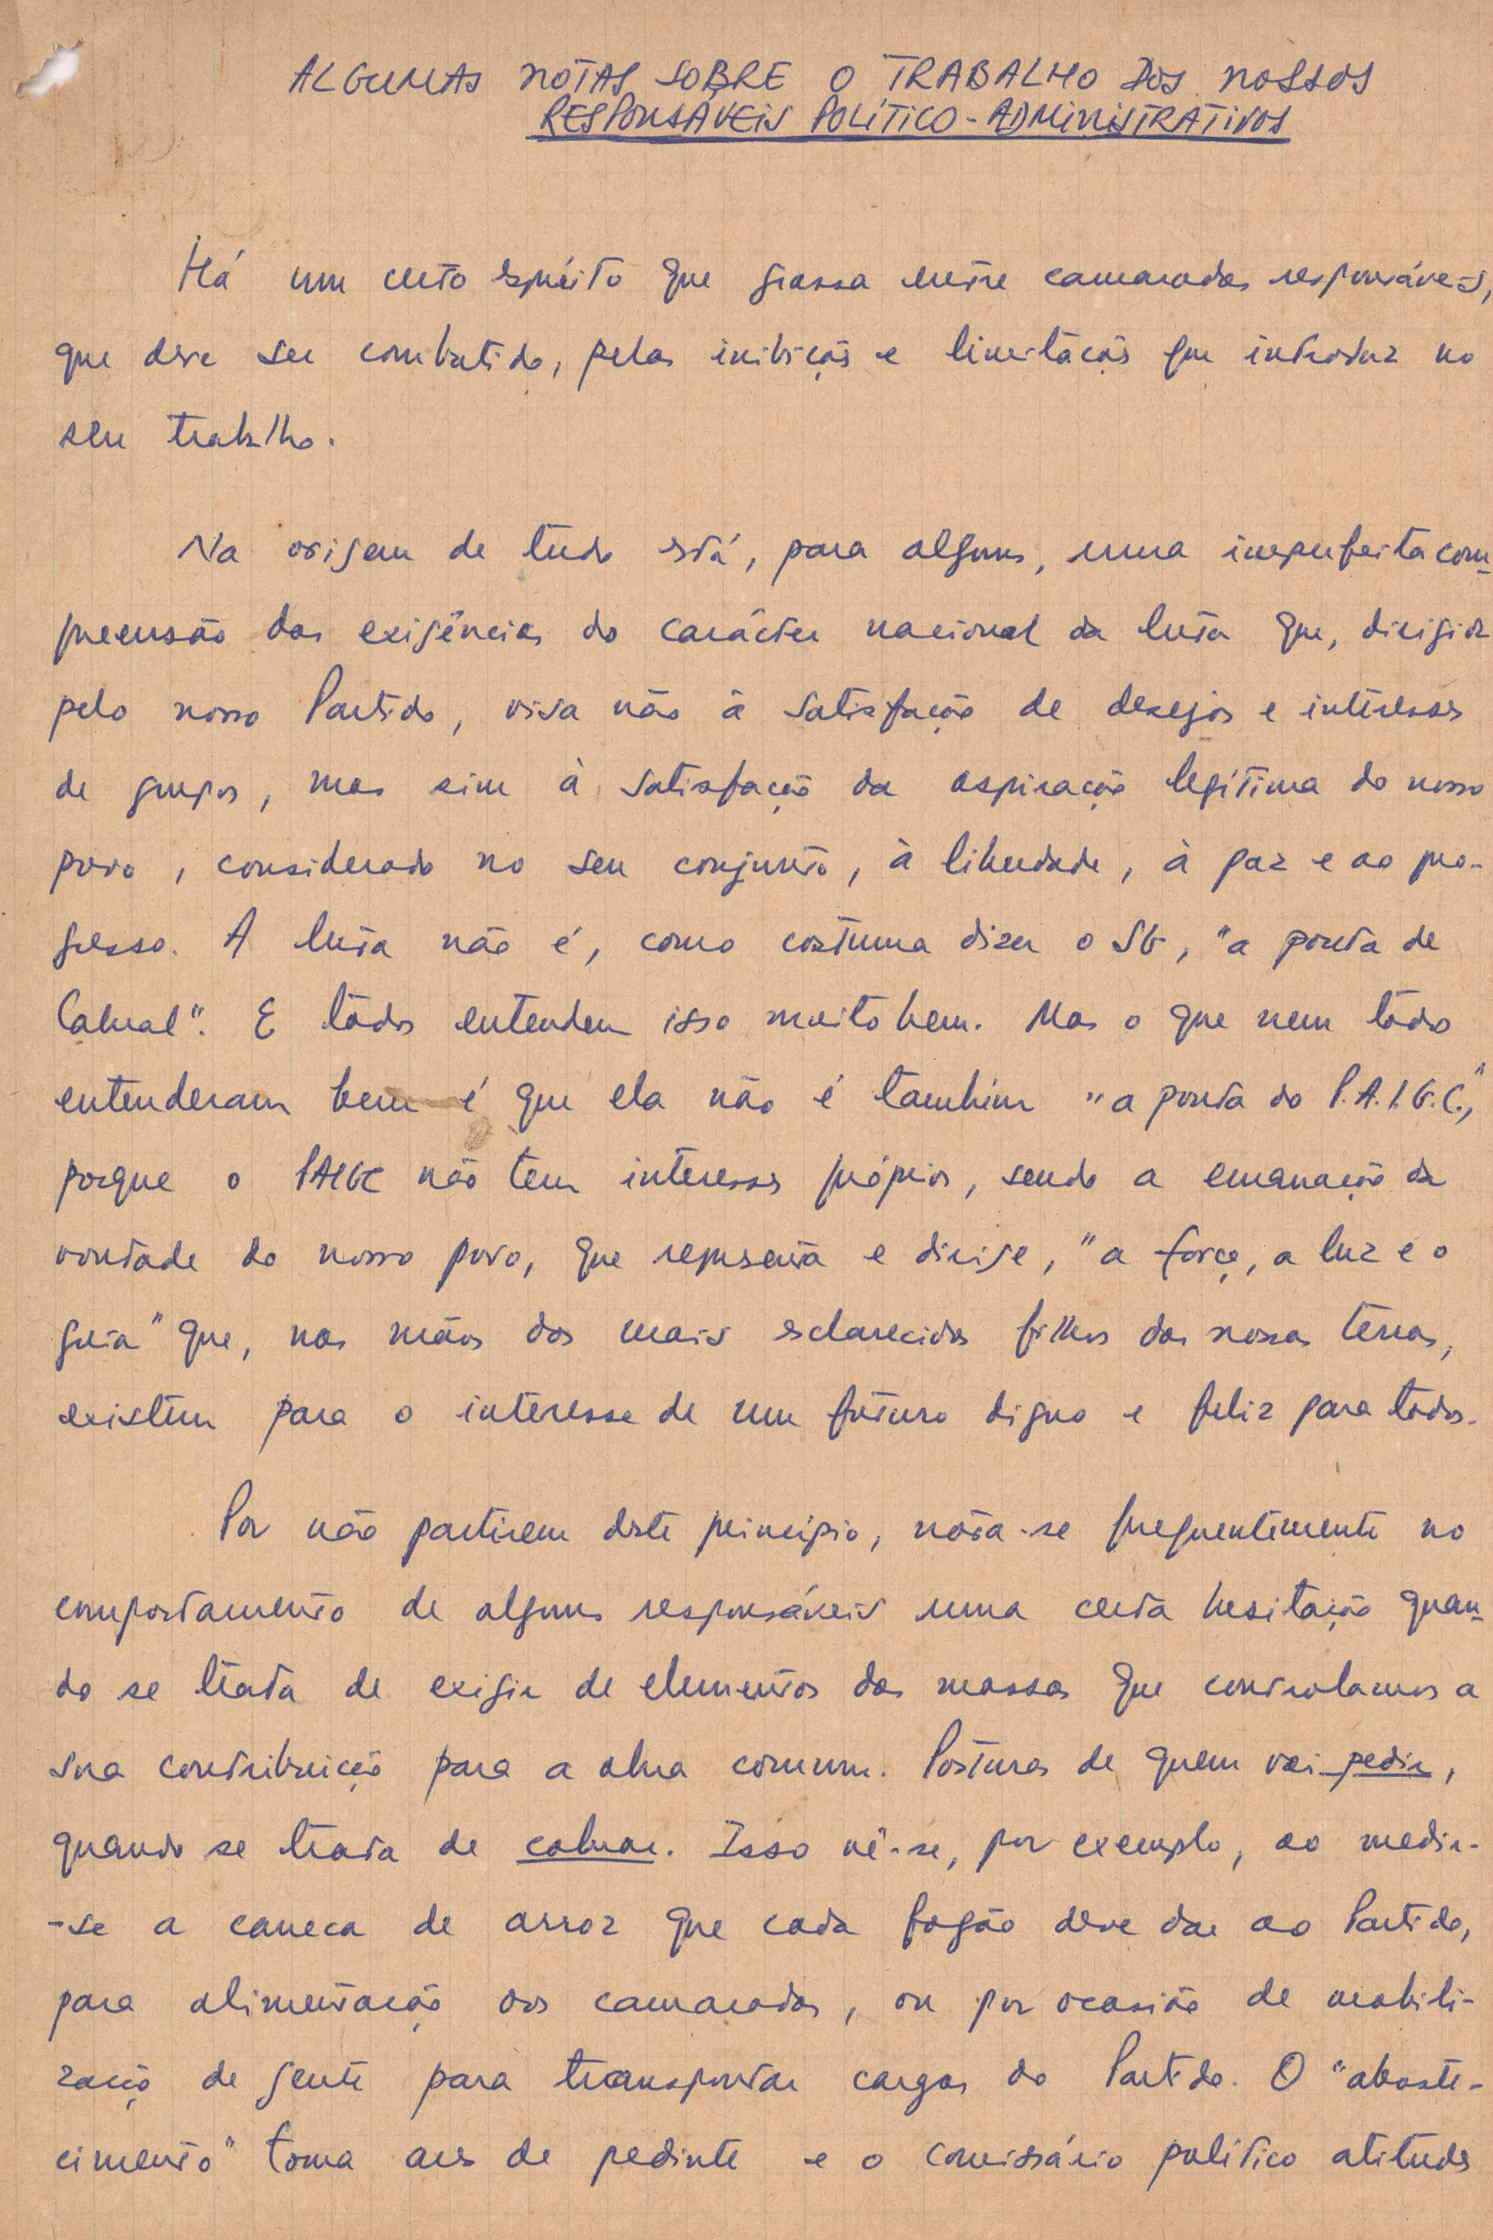 ALGUMAS NOTAS SOBRE O TRABALHO DOS NOSSOS
RESPONSÁVEIS POLÍTICO-ADMINISTRATIVOS
Há um certo espírito que grassa entre camaradas responsáveis,
que deve ser combatido, pelas inibições e limitações que introduz no
seu trabalho.
Na origem de tudo está, para alguns, uma imperfeita com-
preensão das exigências do carácter nacional da luta que, dirigida
pelo nosso Partido, visa não à satisfação de desejos e interesses
de grupos, mas sim à satisfação da aspiração legítima do nosso
povo, considerado no seu conjunto, à liberdade, à paz e ao pro-
gresso. A luta não é, como costuma dizer o SG, "a ponta de
Cabral". E todos entendem isso muito bem. Mas o que nem todos
entenderam bem é que ela não é também "a ponta do P.A.I.G.C.",
porque o PAIGC não tem interesses próprios, sendo a emanação da
vontade do nosso povo, que representa e dirige, "a força, a luz e o
guia" que, nas mãos dos mais esclarecidos filhos das nossas terras,
existem para o interesse de um futuro digno e feliz para todos.
Por não partirem deste princípio, nota-se frequentemente no
comportamento de alguns responsáveis uma certa hesitação quan-
do se trata de exigir de elementos das massas que controlamos a
sua contribuição para a obra comum. Posturas de quem vai pedir,
quando se trata de cobrar. Isso vê-se, por exemplo, ao medir-
-se a caneca de arroz que cada fogão deve dar ao Partido,
para alimentação dos camaradas, ou por ocasião de mobili-
zação de gente para transportar cargas do Partido. O "abaste-
cimento" toma ares de pedinte e o comissário político atitudes